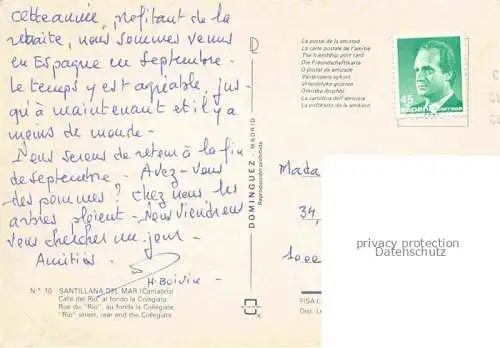 cette année, profitant de la
retraite, nous sommes venus
en Espagne en Septembre.
Le temps y est agréable, jus-
qu'à maintenant et il y a
moins de monde.
Nous serons de retour à la fin
de septembre. Avez-vous
des pommes ? Chez nous les
arbres ploient. Nous viendrons
vous chercher un jour.
Amitiés.
H. Boivin
N.º 10 SANTILLANA DEL MAR (Cantabria)
Calle del "Rio", al fondo la Colegiata
Rue du "Rio", au fonds la Collégiate
"Rio" street, rear and the Collegiate
DOMINGUEZ - MADRID
Reproducción prohibida
La postal de la amistad
La carte postale de l'amitié
The friendship post card
Die Freundschaftskarte
O postal da amizade
La cartolina dell'amicizia
45
Mada
34,
privacy protection
Datenschutz
FISA I.
Dep. L